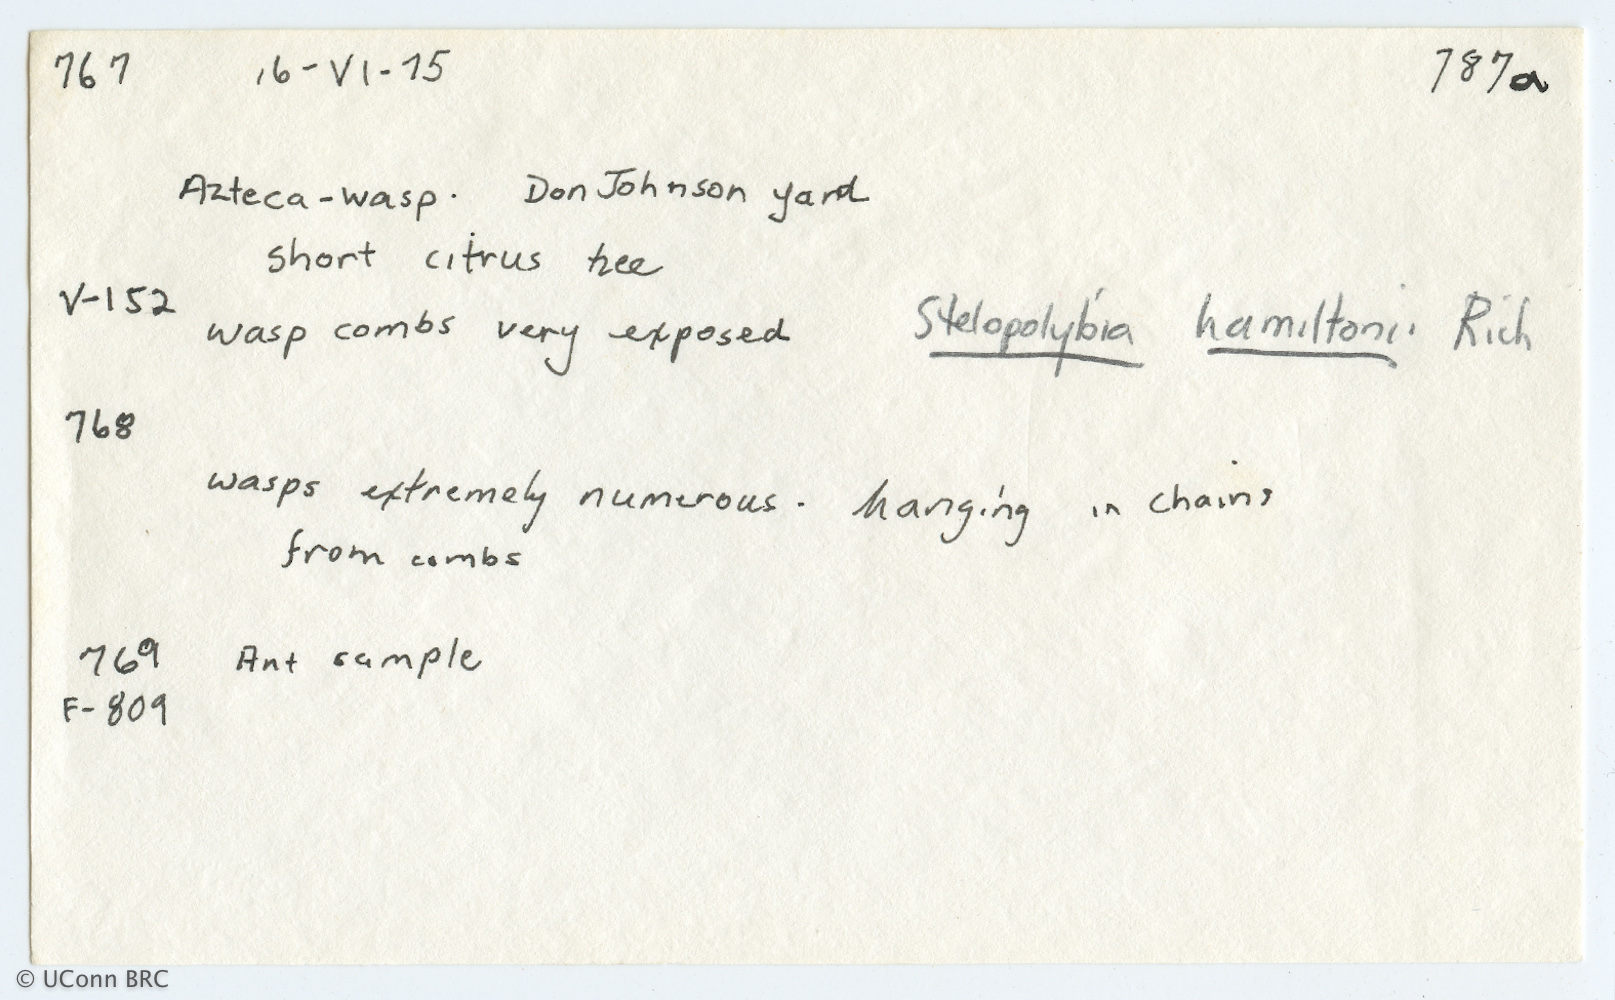 767 16-VI-75 787a
Azteca-wasp. Don Johnson yard
short citrus tree
V-152
wasp combs very exposed Stelopolybia hamiltoni. Rich
768
wasps extremely numerous. hanging in chains
from combs
769 Ant sample
F-809
© UConn BRC